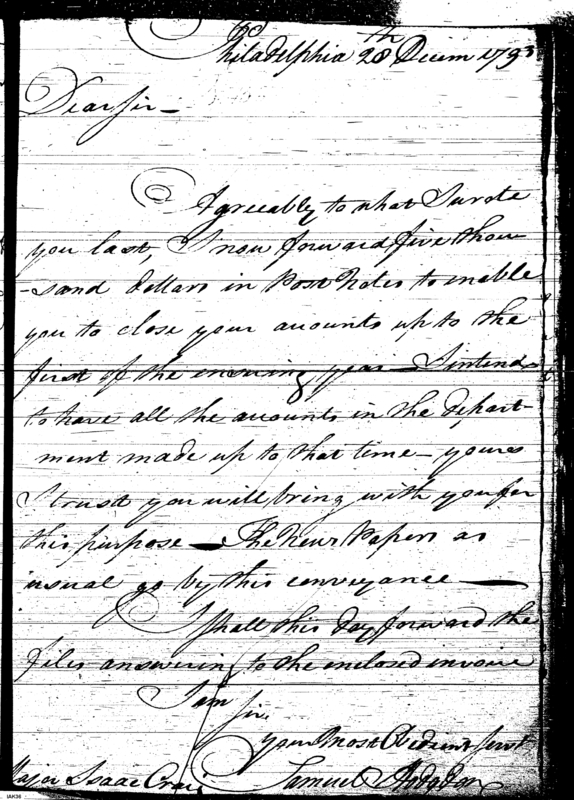 Philadelphia 28th Decem 1793
Dear Sir —
Agreeably to what I wrote
you last, I now forward five thou-
-sand dollars in Post Notes to enable
you to close your accounts up to the
first of the ensuing year — I intend
to have all the accounts in the depart-
ment made up to that time — yours
I trust you will bring with you for
this purpose — The News Papers as
usual go by this conveyance —
I shall this day forward the
files answering to the enclosed invoice
I am
Sir
your Most Obedient Servt
Samuel Hodgdon
Major Isaac Craig
IAH36